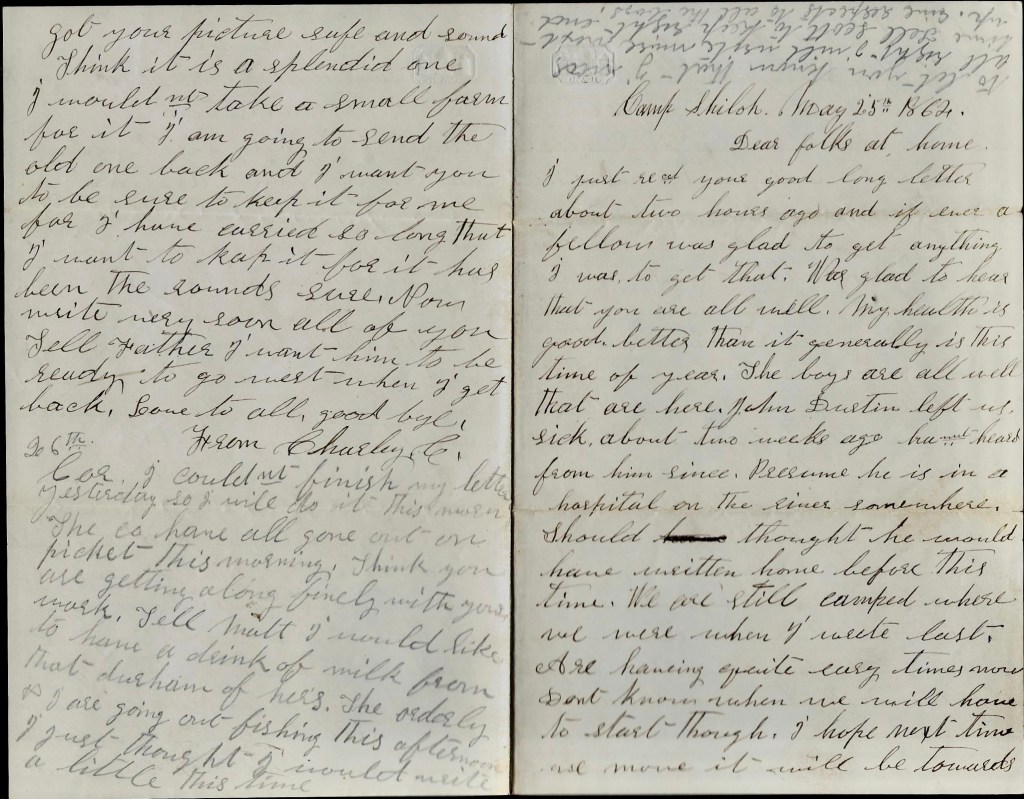 got your picture safe and sound
Think it is a splendid one
I would nt take a small farm
for it I am going to send the
old one back and I want you
to be sure to keep it for me
for I have carried so long that
I want to keep it for it has
been the rounds sure. Now
write very soon all of you
Tell Father I want him to be
ready to go west when I get
back. Love to all, good bye.
From Charley C.
26th.
Cor. I could nt finish my letter
yesterday so I will do it this morn
The co have all gone out on
picket this morning. Think you
are getting along finely with your
work. Tell Matt I would like
to have a drink of milk from
that durham of hers. The orderly
& I are going out fishing this afternoon
I just thought I would write
a little this time
To let you know that I was
all right I will write more next
time Tell Scott to keep right end
up. Give respects to all the boys.
Camp Shiloh. May 25th 1862.
Dear folks at home.
I just recd your good long letter
about two hours ago and if ever a
fellow was glad to get anything
I was, to get that. Was glad to hear
that you are all well. My health is
good. better than it generally is this
time of year. The boys are all well
that are here. John Dustin left us,
sick, about two weeks ago hav nt heard
from him since. Presume he is in a
hospital on the river somewhere.
Should thought he would
have written home before this
time. We are still camped where
we were when I wrote last.
Are having quite easy times now
Dont know when we will have
to start though. I hope next time
we move it will be towards